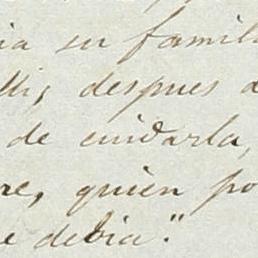 ia su famil
lli, despues d
de cuidarla,
re, quien po
e debia".